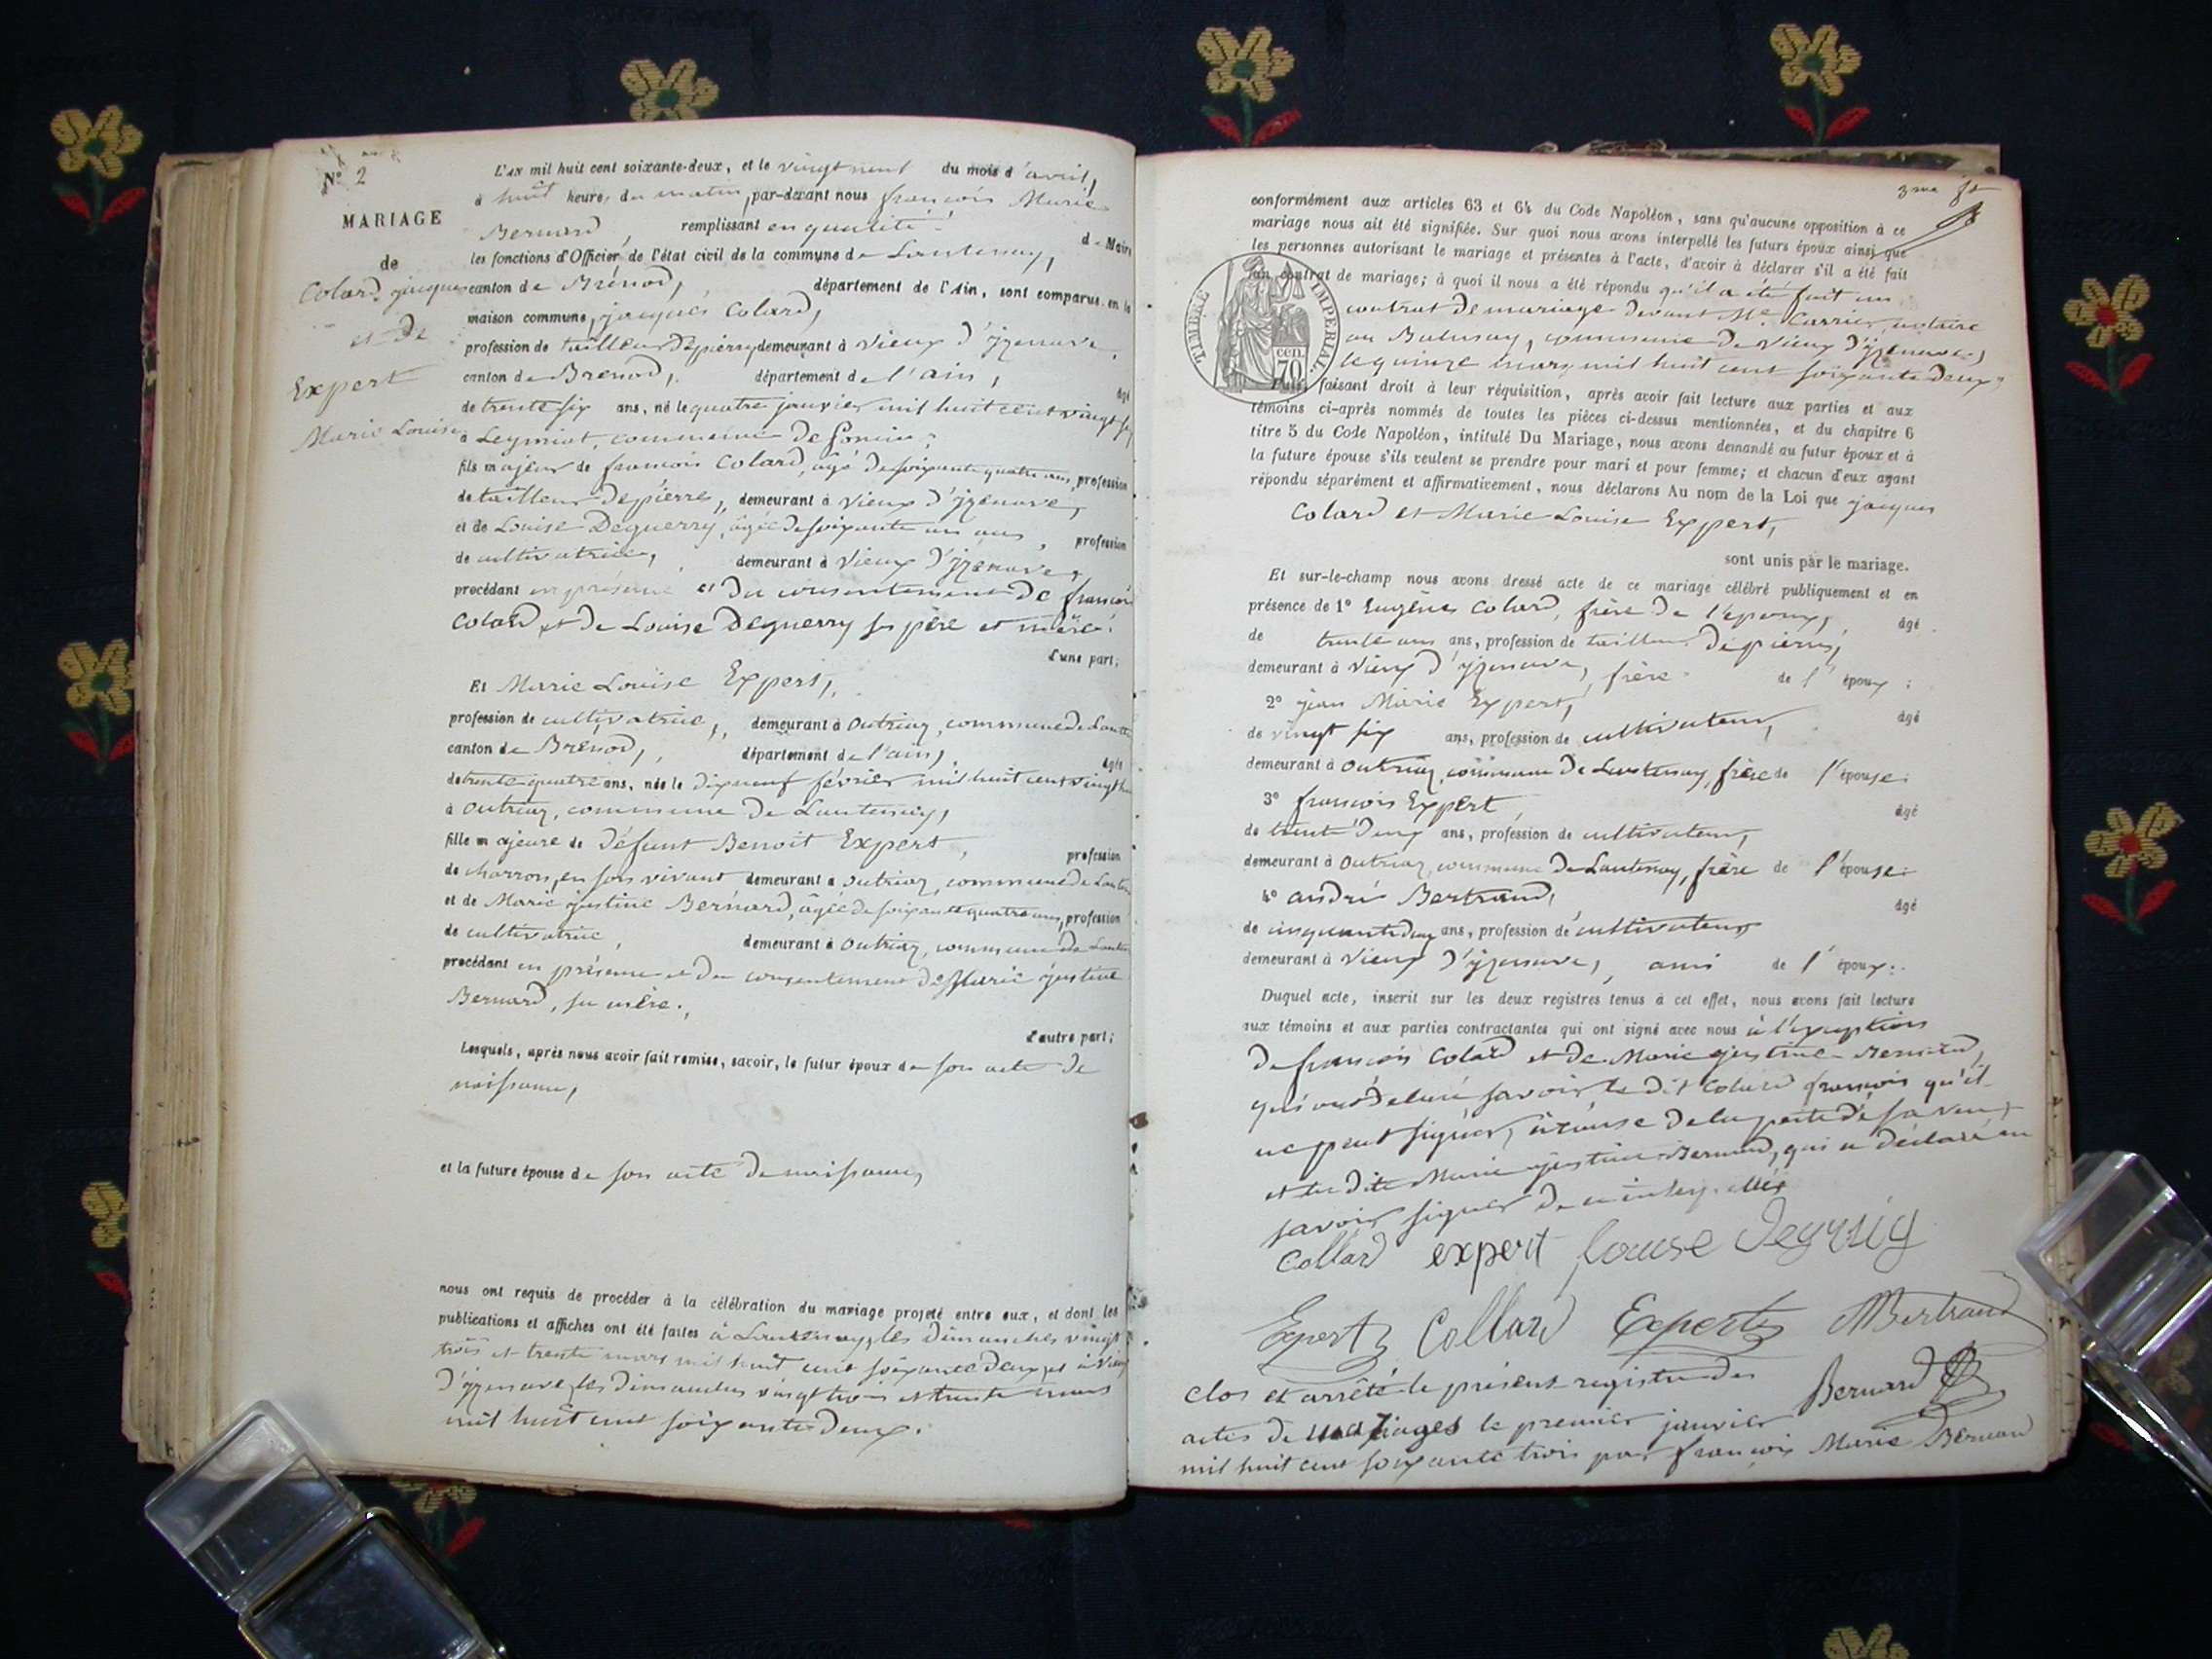 N° 2
MARIAGE
de
Colard jacques
et de
Expert
Marie Louise
L'AN mil huit cent soixante-deux, et le vingt neuf du mois d'avril,
à huit heures du matin, par-devant nous françois Marie
Bernard, remplissant en qualité de Maire
les fonctions d'Officier de l'état civil de la commune de Lantenay,
canton de Brénod, département de l'Ain, sont comparus en la
maison commune, jacques Colard,
profession de tailleur de pierres, demeurant à Vieux d'yzenave,
canton de Brenod, département de l'ain, âgé
de trente six ans, né le quatre janvier mil huit cent vingt six
à Leymiat, commune de
fils majeur de françois Colard, âgé de soixante quatre ans, profession
de tailleur de pierre, demeurant à Vieux d'yzenave,
et de Louise Deguerry, âgée de soixante un ans, profession
de cultivatrice, demeurant à Vieux d'yzenave,
procédant en présence et du consentement de françois
Colard et de Louise Deguerry ses père et mère.
d'une part;
Et Marie Louise Expert,
profession de cultivatrice, demeurant à Outriaz, commune de Lante
canton de Brenod, département de l'ain, âgée
de trente quatre ans, née le dix neuf février mil huit cent vingt
à Outriaz, commune de Lantenay,
fille majeure de défunt Benoit Expert, profession
de charron, en son vivant demeurant à Outriaz, commune de Lante
et de Marie justine Bernard, âgée de soixante quatre ans, profession
de cultivatrice, demeurant à Outriaz, commune de Lante
procédant en présence et du consentement de Marie justine
Bernard, sa mère.
d'autre part;
Lesquels, après nous avoir fait remise, savoir, le futur époux de son acte de
naissance,
et la future épouse de son acte de naissance,
nous ont requis de procéder à la célébration du mariage projeté entre eux, et dont les
publications et affiches ont été faites à Lantenay, les dimanches vingt
trois et trente mars mil huit cent soixante deux, et à Vieux
d'yzenave, les dimanches vingt trois et trente mars
mil huit cent soixante deux.
3me
conformément aux articles 63 et 64 du Code Napoléon, sans qu'aucune opposition à ce
mariage nous ait été signifiée. Sur quoi nous avons interpellé les futurs époux ainsi que
les personnes autorisant le mariage et présentes à l'acte, d'avoir à déclarer s'il a été fait
un contrat de mariage; à quoi il nous a été répondu qu'il a été fait un
TIMBRE IMPERIAL
70 cen.
contrat de mariage devant Me Carrier, notaire
au Balmay, commune de Vieux d'yzenave,
le quinze mars mil huit cent soixante deux.
Puis, faisant droit à leur réquisition, après avoir fait lecture aux parties et aux
témoins ci-après nommés de toutes les pièces ci-dessus mentionnées, et du chapitre 6
titre 5 du Code Napoléon, intitulé Du Mariage, nous avons demandé au futur époux et à
la future épouse s'ils veulent se prendre pour mari et pour femme; et chacun d'eux ayant
répondu séparément et affirmativement, nous déclarons Au nom de la Loi que jacques
Colard et Marie Louise Expert,
sont unis par le mariage.
Et sur-le-champ nous avons dressé acte de ce mariage célébré publiquement et en
présence de 1° Eugène Colard, frère de l'époux, âgé
de trente ans ans, profession de tailleur de pierres,
demeurant à Vieux d'yzenave, frère de l'époux;
2° jean Marie Expert, âgé
de vingt six ans, profession de cultivateur,
demeurant à Outriaz, commune de Lantenay, frère de l'épouse;
3° françois Expert, âgé
de trente deux ans, profession de cultivateur,
demeurant à Outriaz, commune de Lantenay, frère de l'épouse;
4° andré Bertrand, âgé
de cinquante deux ans, profession de cultivateur
demeurant à Vieux d'yzenave, ami de l'époux.
Duquel acte, inscrit sur les deux registres tenus à cet effet, nous avons fait lecture
aux témoins et aux parties contractantes qui ont signé avec nous à l'exception
de françois Colard et de Marie justine Bernard,
qui ont déclaré savoir le dit Colard françois qu'il
ne peut signer, à cause de la perte de sa vue,
et la dite Marie justine Bernard, qui a déclaré ne
savoir signer de ce interpellés
Collard expert louise
Expert Collard Expert Bertrand
Bernard
clos et arrêté le présent registre des
actes de mariages le premier janvier
mil huit cent soixante trois par françois Marie Bernard